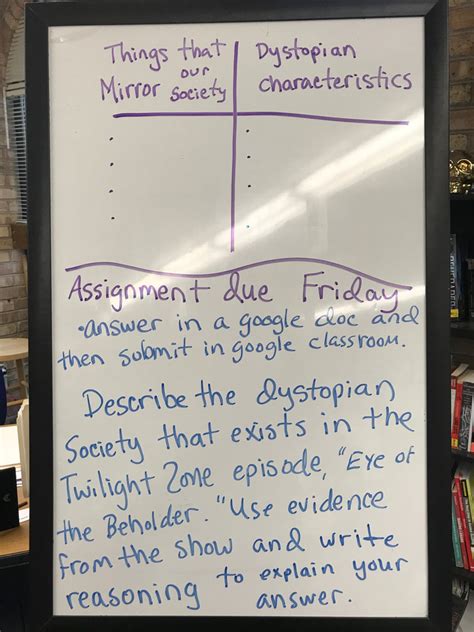 Things that our Mirror Society
Dystopian
characteristics
Assignment due Friday
• answer in a google doc and
then submit in google classroom.
Describe the dystopian
Society that exists in the
Twilight Zone episode, "Eye of
the Beholder." Use evidence
from the show and write
reasoning to explain your
answer.